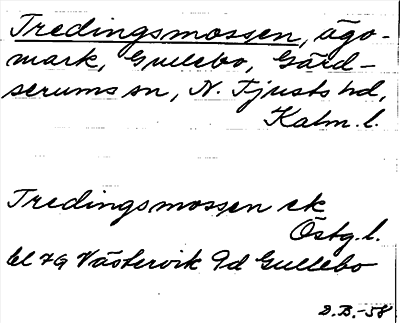 Tredingsmossen, ägo-
mark, Gullebo, Gärd-
serums sn, N. Tjusts hd,
Kalm. l.
Tredingsmossen ek
Östg. l.
bl 79 Västervik 9d Gullebo
D.B.-58